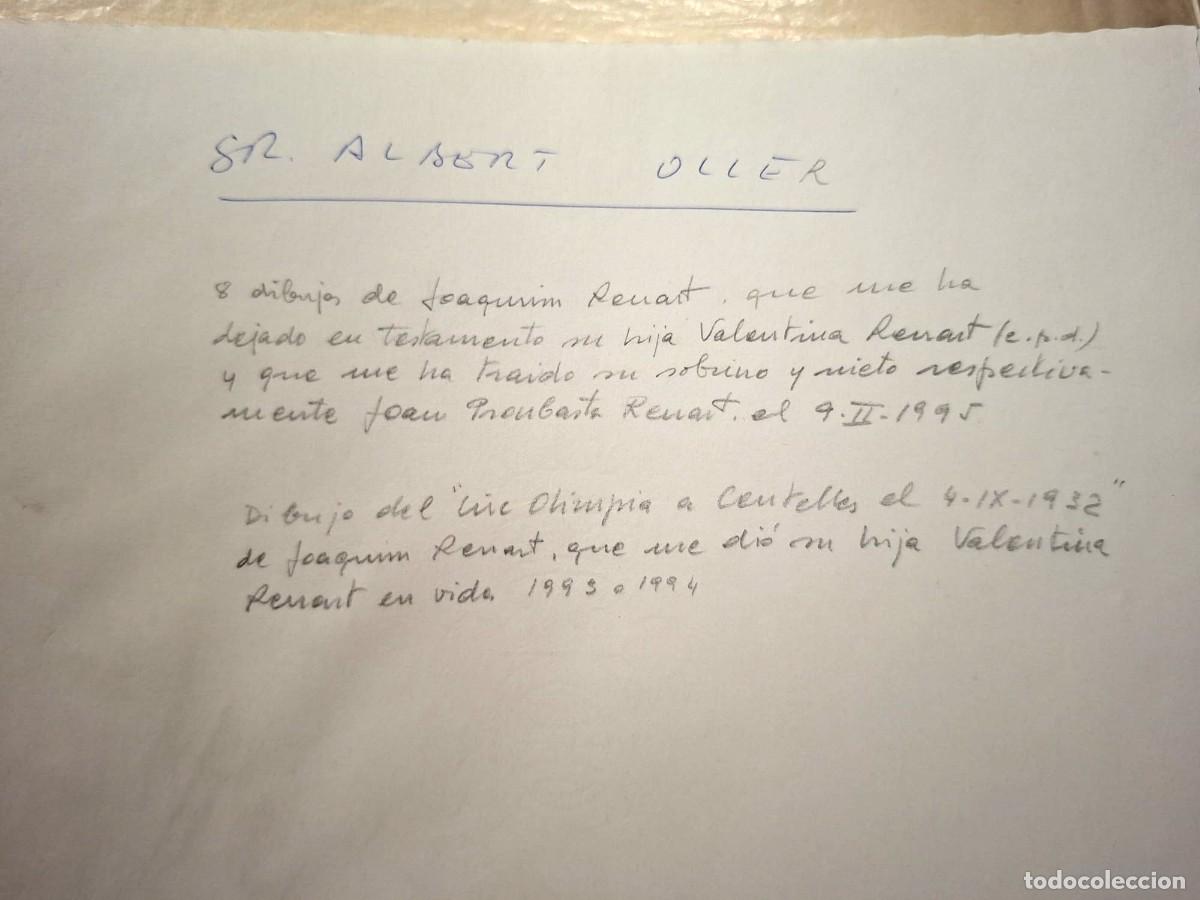 SR. ALBERT OLLER
8 dibujos de Joaquim Renart, que me ha
dejado en testamento su hija Valentina Renart (e.p.d.)
y que me ha traido su sobrino y nieto respectiva-
mente Joan Proubasta Renart, el 9-II-1995
Dibujo del "Circ Olimpia a Centelles el 4-IX-1932"
de Joaquim Renart, que me dió su hija Valentina
Renart en vida 1993 o 1994
todocoleccion